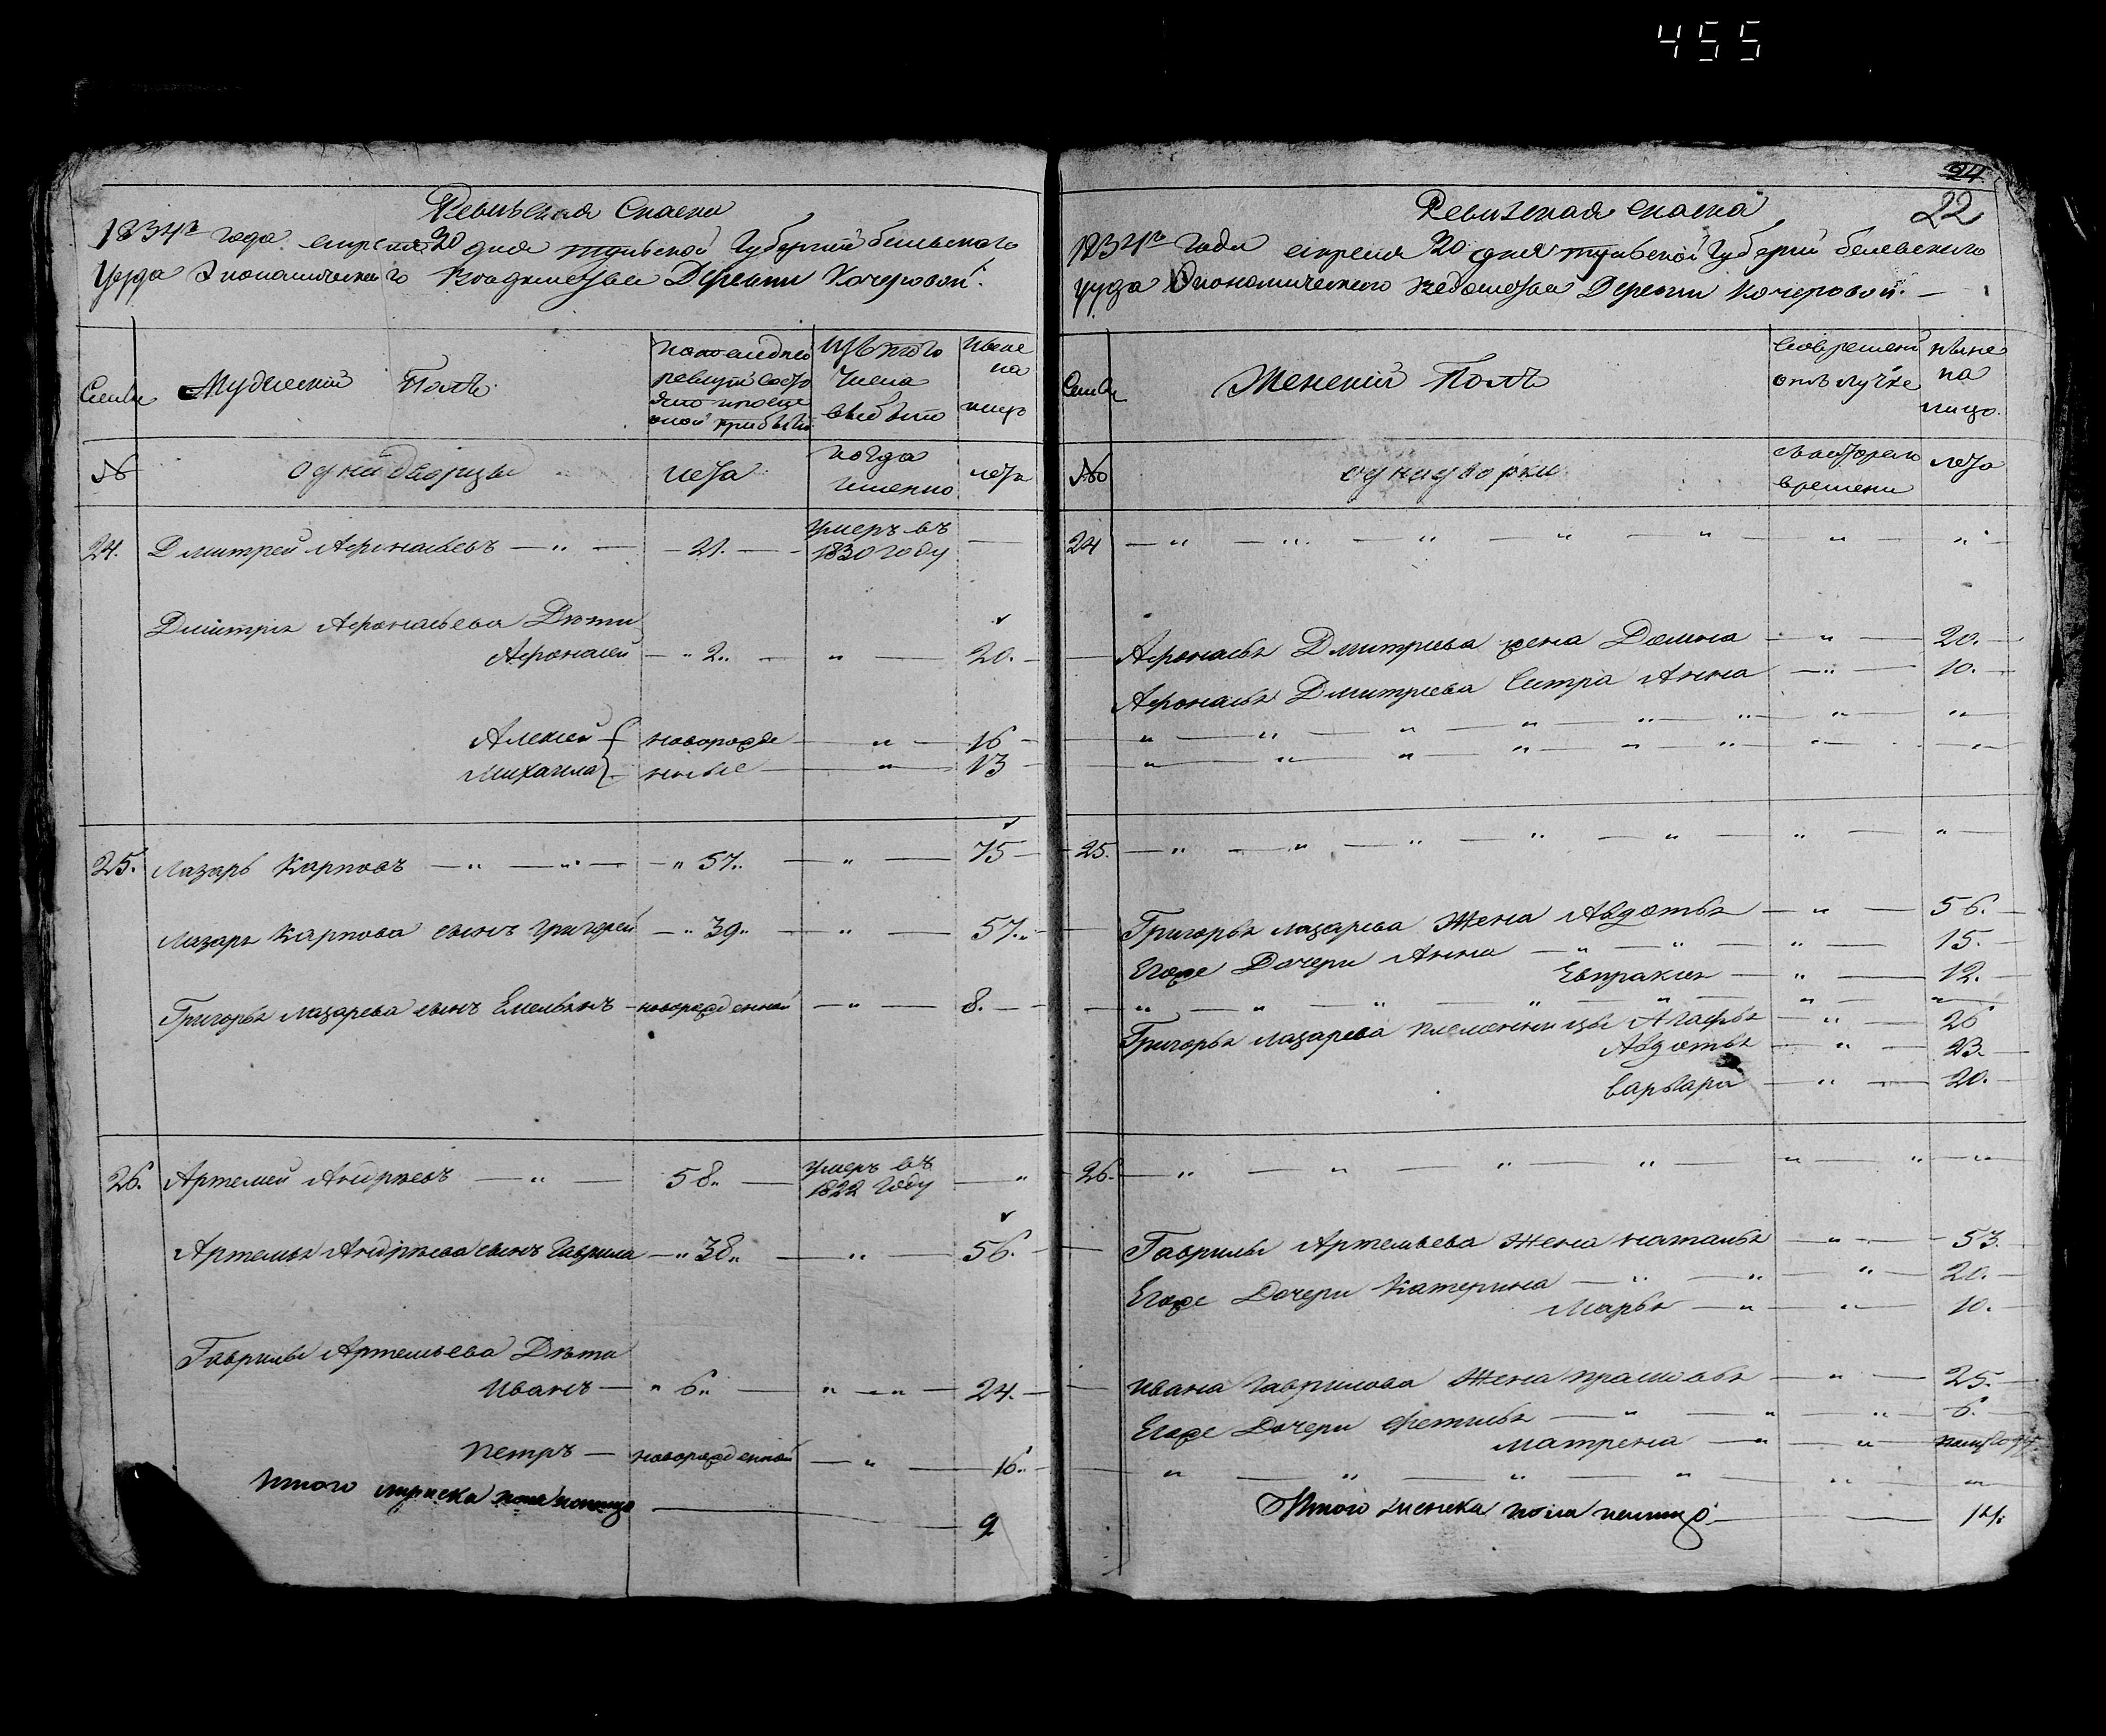 455
Ревизская Скаска
1834го года апреля 30 дня тульской Губернии белевского
уезда Экономическаго Ведомства Деревни Кочеровой.
Семьи
Мужеский Полъ
По последней
ревизии состо
яло и после
оной прибыло
Изъ того
числа
выбыло
Ныне
на
лицо
№
однодворцы
лета
когда
именно
лета
24. Дмитрей Афонасьевъ — „ — 21. — умеръ въ 1830 году —
Дмитрия Афонасьева Дети
Афонасей — „ 2 „ — „ — 20. —
Алексей — новорожде — „ — 16 —
Михаила — нные — „ — 13 —
25. Лазарь Карповъ — „ — „ — „ 57 „ — „ — 75 —
Лазаря Карпова сынъ Григорей — „ 39 „ — „ — 57 „
Григорья Лазарева сынъ Емельянъ — новорожденной — „ — 8. —
26. Артемей Андреевъ — „ — 58 „ — умеръ въ 1822 году — „
Артемья Андреева сынъ Гаврила — „ 38 „ — „ — 56. —
Гаврилы Артемьева Дети
Иванъ — „ 6 „ — „ — „ — 24. —
Петръ — новорожденной — „ — 16 „
Итого мужеска пола налицо — 9
24
22
Ревизская скаска
1834го Года апреля 30 дня тульской Губернии белевского
уезда Экономического Ведомства Деревни Кочеровой. —
Семьи
Женский Полъ
Во временной
отлучке
ныне
на
лицо.
№
однодворки
с котораго
времени
лета
24 — „ — „ — „ — „ — „ — „ — „
Афонасья Дмитриева жена Домна — „ — 20. —
Афонасья Дмитриева сестра Анна — „ — 10. —
„ — „ — „ — „ — „ — „ — „ — „
„ — „ — „ — „ — „ — „ — „ — „
25. — „ — „ — „ — „ — „ — „ — „
Григорья Лазарева Жена Авдотья — „ — 56. —
Егоже Дочери Анна — „ — „ — „ — 15. —
Евпраксия — „ — 12. —
„ — „ — „ — „ — „ — „ — „
Григорья Лазарева племянницы Агафья — „ — 26
Авдотья — „ — 23. —
Варвара — „ — 20. —
26. — „ — „ — „ — „ — „ — „ — „
Гаврилы Артемьева Жена Наталья — „ — 53.
Егоже Дочери Катерина — „ — „ — „ — 20. —
Марья — „ — „ — 10.
Ивана Гаврилова Жена Прасковья — „ — 25. —
Егоже Дочери Фетинья — „ — „ — „ — 6. —
Матрена — „ — „
„ — „ — „ — „ — „ — „
Итого женска пола налицо — 14.